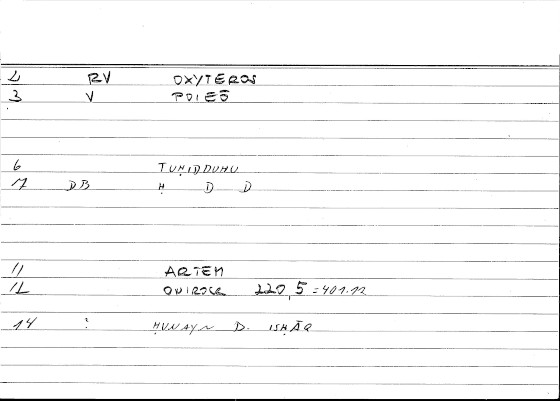 2 RV OXYTEROS
3 V POIEŌ
6 TUḤIDDUHU
17 DB Ḥ D D
11 ARTEM
12 220,5 = 401.12
14 : ḤUNAYN D. ISḤĀQ